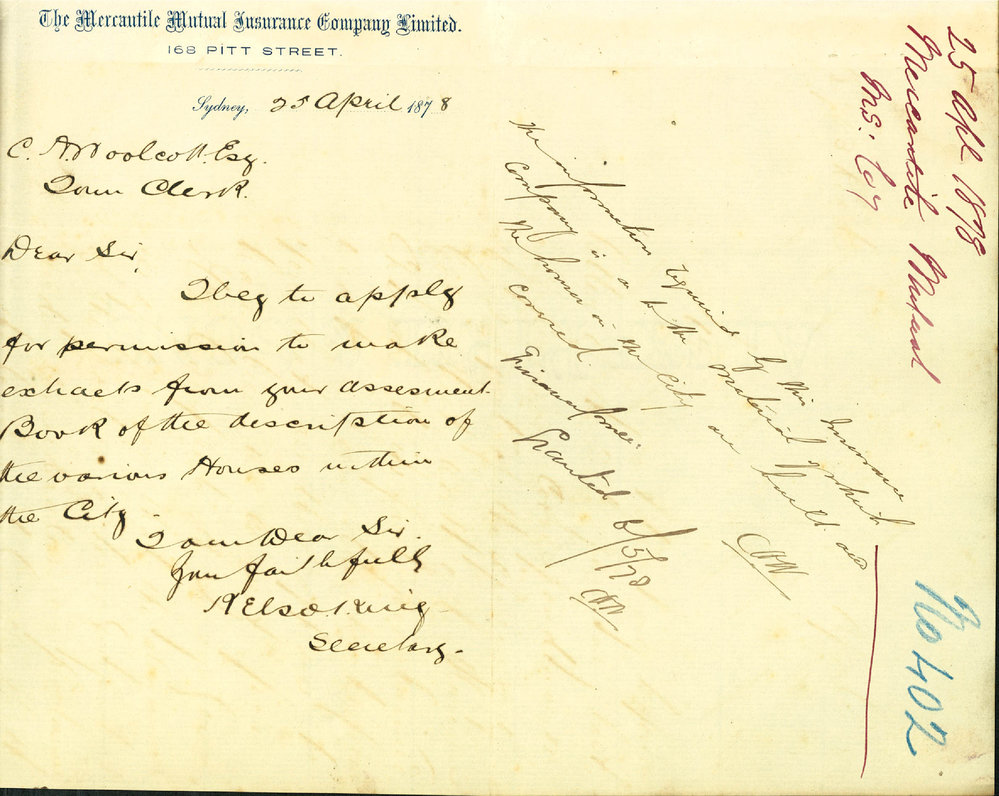 The Mercantile Mutual Insurance Company Limited.
168 PITT STREET.
Sydney, 25 April 1878
C. H. Woolcott. Esq.
Town Clerk.
Dear Sir,
I beg to apply
for permission to make
extracts from your assesment
Book of the description of
the various Houses within
the City
I am Dear Sir.
Your faithfully
Secretary.
The information required by this Insurance
Company is as to the material of which
the houses in the City are built and
covered.
CHW
Finance Comee:
Granted 6/5/78
CHW
25 Apl 1878
Mercantile Mutual
Ins: Coy
No 402